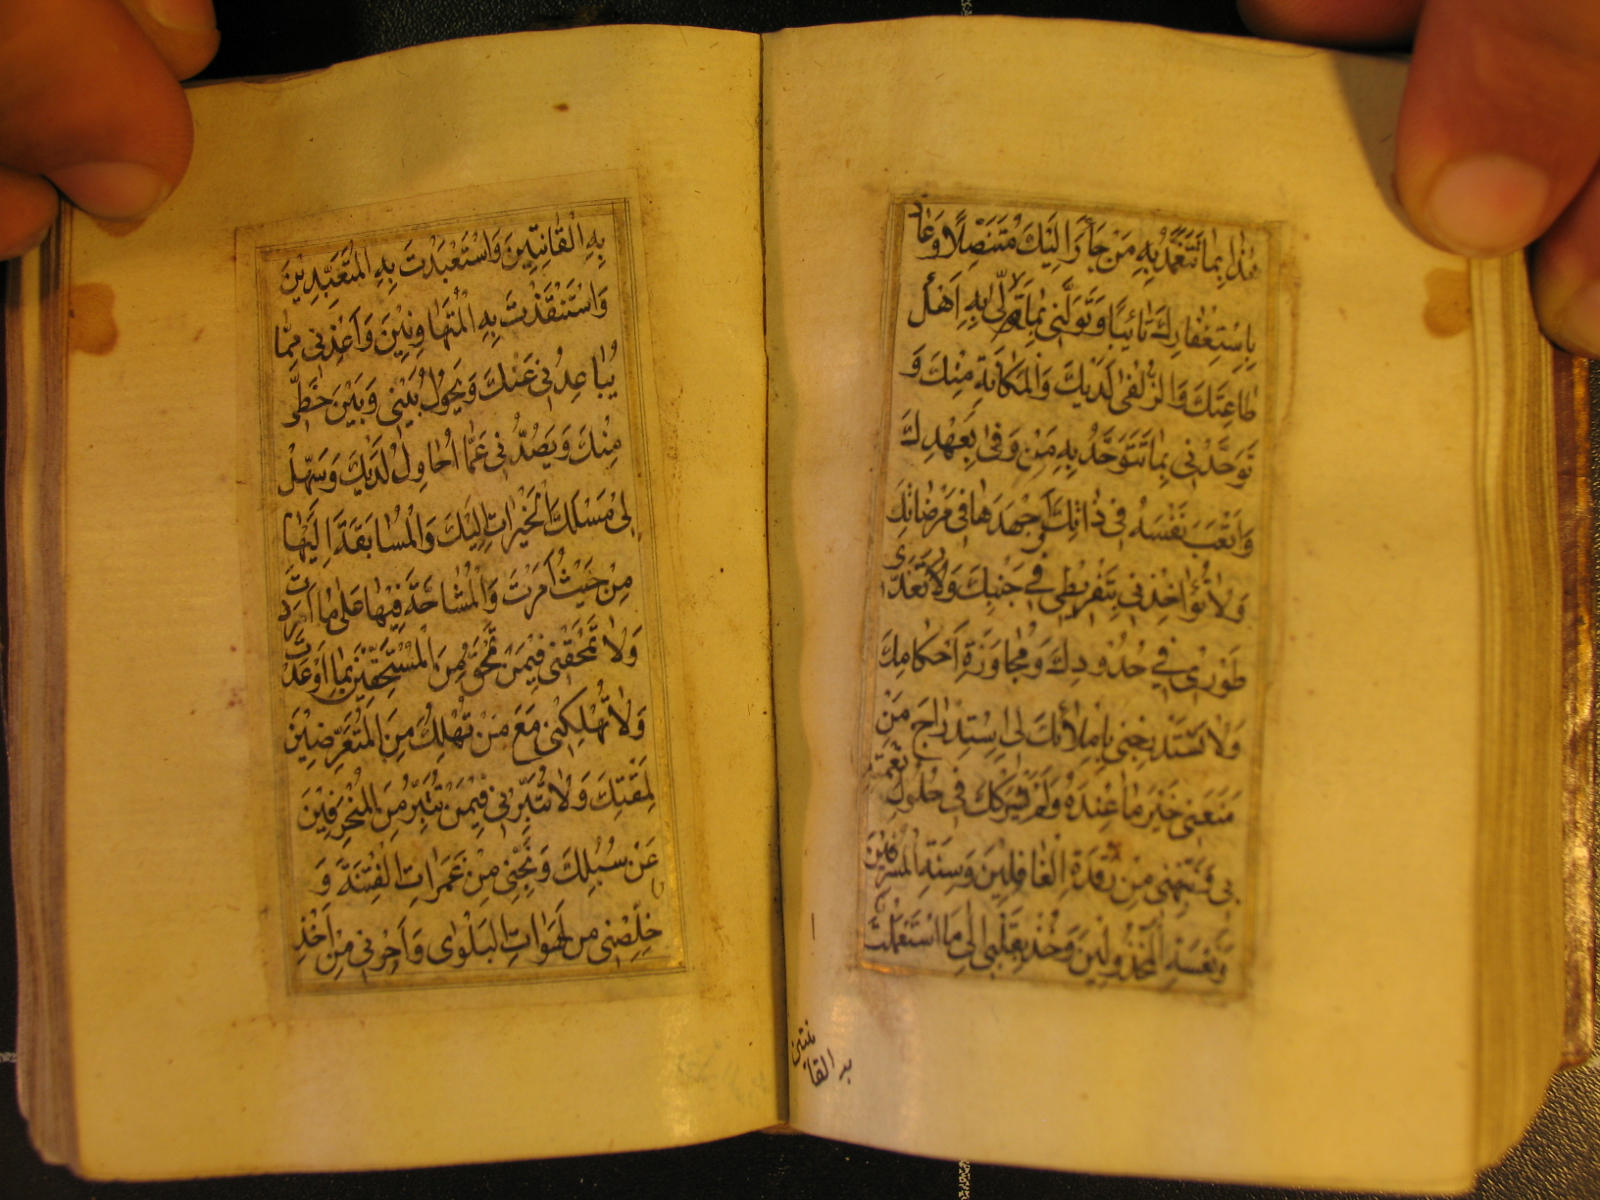 هٰذَا بِمَا تَتَغَمَّدُ بِهِ مَنْ جَأَرَ اِلَيْكَ مُتَنَصِّلًا وَعَاذَ
بِاسْتِغْفَارِكَ تَائِبًا وَتَوَلَّنِي بِمَا تَتَوَلّٰى بِهِ اَهْلَ
طَاعَتِكَ وَالزُّلْفٰى لَدَيْكَ وَالْمَكَانَةِ مِنْكَ وَ
تَوَحَّدْنِي بِمَا تَتَوَحَّدُ بِهِ مَنْ وَفٰى بِعَهْدِكَ
وَاَتْعَبَ نَفْسَهُ فِي ذَاتِكَ وَاَجْهَدَهَا فِي مَرْضَاتِكَ
وَلَا تُؤَاخِذْنِي بِتَفْرِيطِي فِي جَنْبِكَ وَلَا تَعَدِّي
طَوْرِي فِي حُدُودِكَ وَمُجَاوَزَةِ اَحْكَامِكَ
وَلَا تَسْتَدْرِجْنِي بِاِمْلَائِكَ لِي اسْتِدْرَاجَ مَنْ
مَنَعَنِي خَيْرَ مَا عِنْدَهُ وَلَمْ يَشْرَكْكَ فِي حُلُولِ نِعْمَتِهِ
بِي وَنَبِّهْنِي مِنْ رَقْدَةِ الْغَافِلِينَ وَسِنَةِ الْمُسْرِفِينَ
وَنَعْسَةِ الْمَخْذُولِينَ وَخُذْ بِقَلْبِي اِلٰى مَا اسْتَعْمَلْتَ
به القانتين
بِهِ الْقَانِتِينَ وَاسْتَعْبَدْتَ بِهِ الْمُتَعَبِّدِينَ
وَاسْتَنْقَذْتَ بِهِ الْمُتَهَاوِنِينَ وَاَعِذْنِي مِمَّا
يُبَاعِدُنِي عَنْكَ وَيَحُولُ بَيْنِي وَبَيْنَ حَظِّي
مِنْكَ وَيَصُدُّنِي عَمَّا اُحَاوِلُ لَدَيْكَ وَسَهِّلْ
لِي مَسْلَكَ الْخَيْرَاتِ اِلَيْكَ وَالْمُسَابَقَةَ اِلَيْهَا
مِنْ حَيْثُ اَمَرْتَ وَالْمُشَاحَّةَ فِيهَا عَلٰى مَا اَرَدْتَ
وَلَا تَمْحَقْنِي فِيمَنْ تَمْحَقُ مِنَ الْمُسْتَخِفِّينَ بِمَا اَوْعَدْتَ
وَلَا تُهْلِكْنِي مَعَ مَنْ تُهْلِكُ مِنَ الْمُتَعَرِّضِينَ
لِمَقْتِكَ وَلَا تُتَبِّرْنِي فِيمَنْ تُتَبِّرُ مِنَ الْمُنْحَرِفِينَ
عَنْ سُبُلِكَ وَنَجِّنِي مِنْ غَمَرَاتِ الْفِتْنَةِ وَ
خَلِّصْنِي مِنْ لَهَوَاتِ الْبَلْوٰى وَاَجِرْنِي مِنْ اَخْذِ